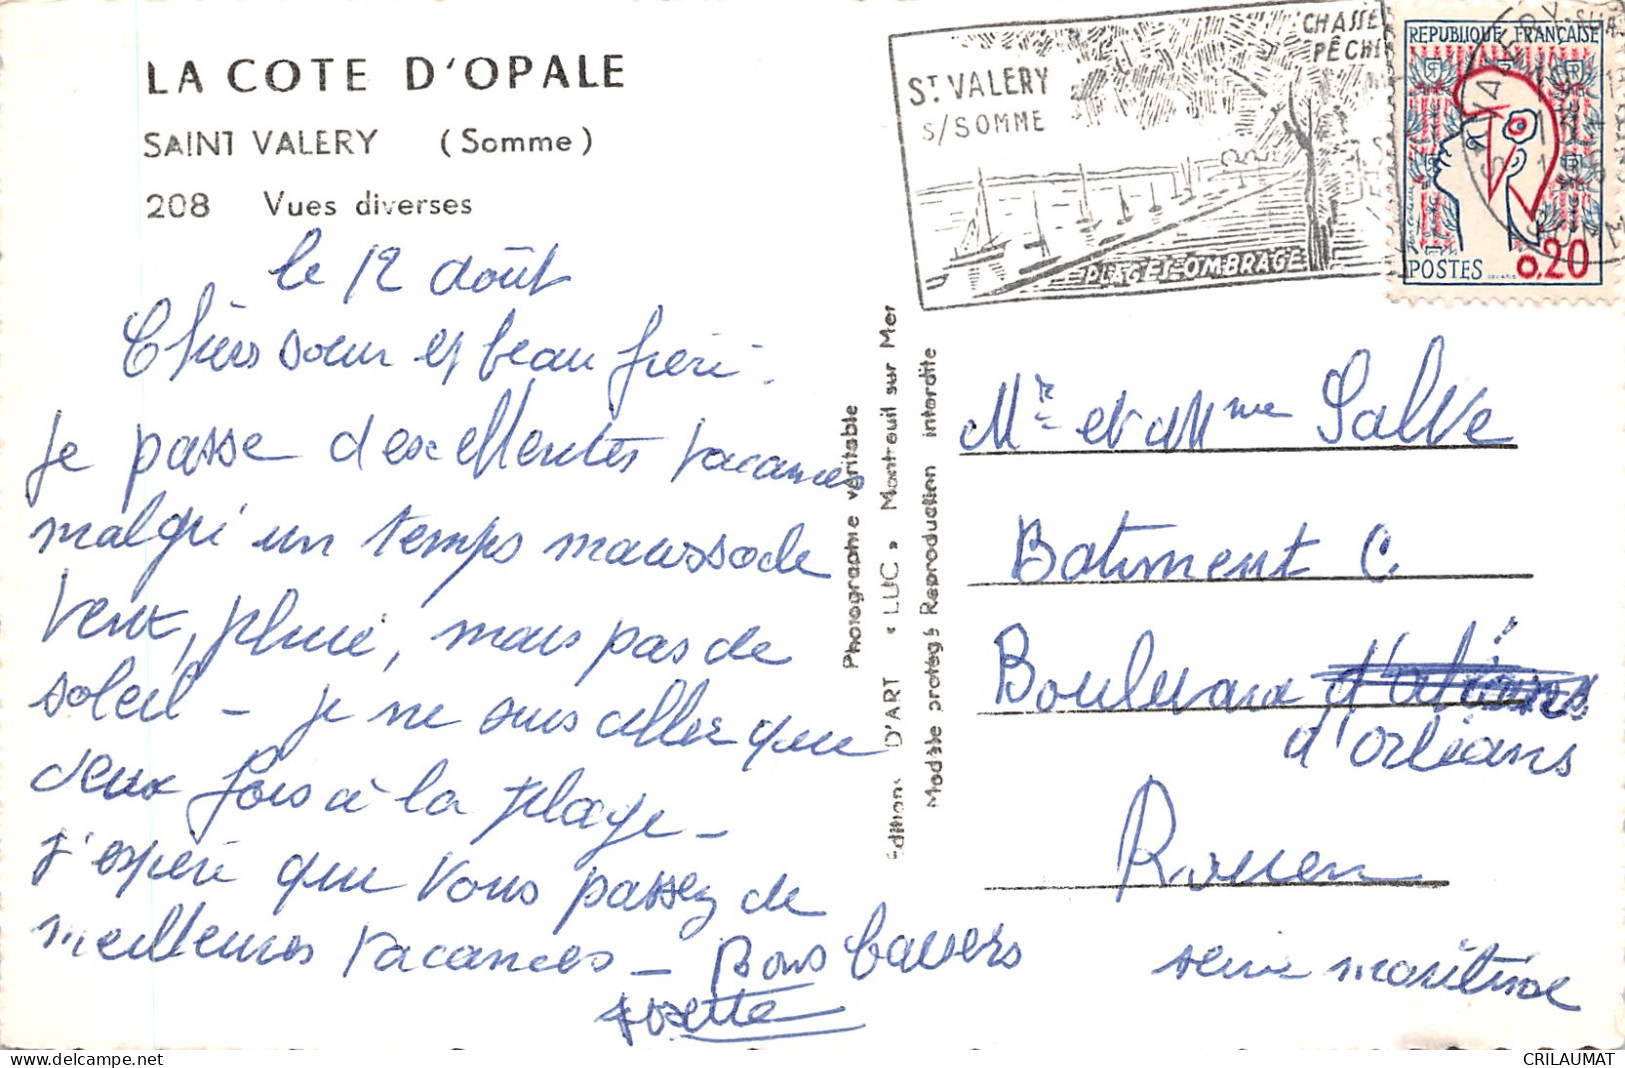 LA COTE D'OPALE
SAINT VALERY (Somme)
208 Vues diverses
le 12 août
Chers soeur et beau frère.
Je passe d'excellentes vacances
malgré un temps maussade
Vent, pluie, mais pas de
soleil - je ne suis allée que
deux fois à la plage -
J'espère que vous passez de
meilleures vacances - Bons baisers
Josette
Photographie véritable
Editions D'ART « LUC » Montreuil sur Mer
Modèle protégé Reproduction interdite
ST VALERY
S/SOMME
CHASSE
PÊCHE
PLAGE OMBRAGÉE
REPUBLIQUE FRANÇAISE
POSTES 0,20
Mr et Mme Salve
Batiment C
Boulevard
d'orléans
Rouen
seine maritime
CRILAUMAT
delcampe.net